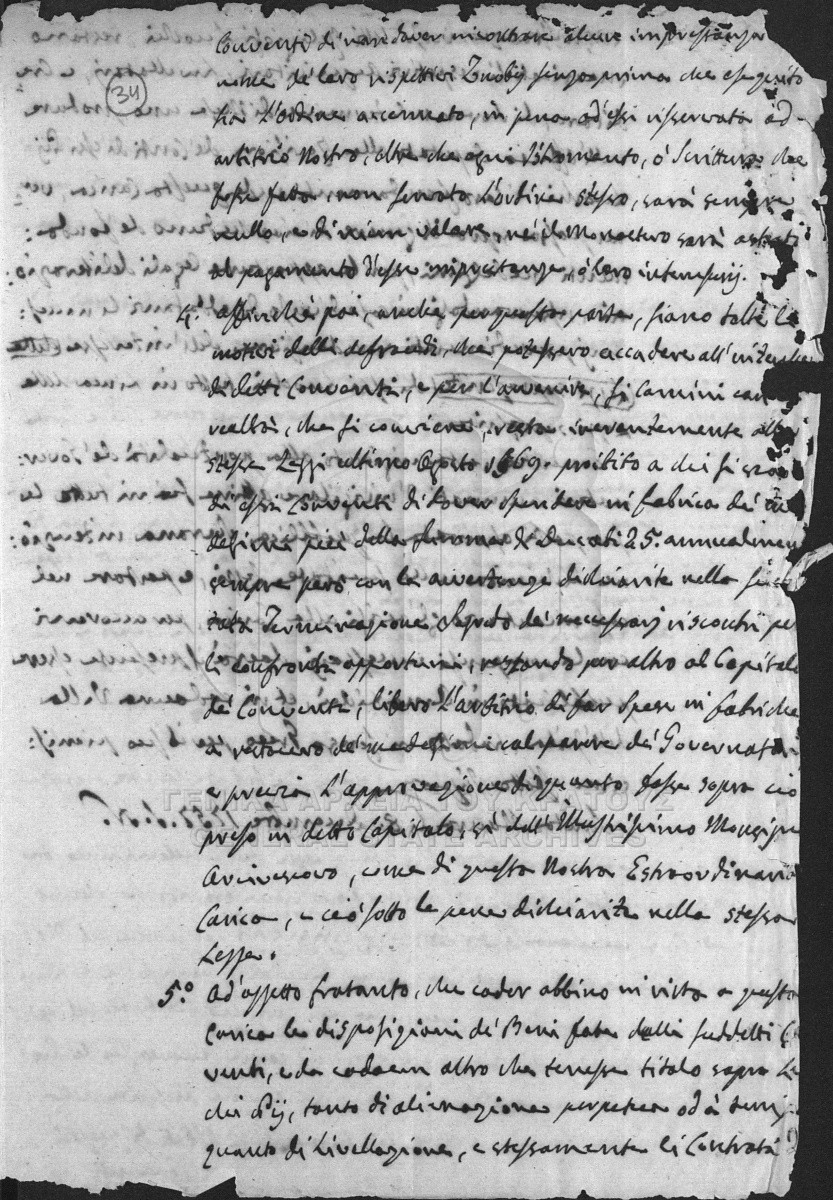 34
Conventi di non dover incontrare alcuna imprestanza
nome de loro rispettivi Luoghi senza prima che eseguito
sia l'ordine accennato, in pena ad essi riservata ad
arbitrio Nostro, oltre che ogni Istromento, ò Scrittura che
fosse fatta, non servato l'ordine stesso, sarà sempre
nulla, e di niun valore, nè il Monastero sarà astretto
al pagamento d'esse imprestanze, ò loro interessi.
4.° Affinchè poi, anche per questa parte, siano tolti li
motivi delli defraudi, che potessero accadere all'
di detti Conventi, e per l'avvenire, si camini con
realtà, che si conviene, resta inerentemente alla
stessa Legge ultimo Agosto proibito a chi si sia
di essi Conventi di dover spendere in fabrica de
desimi più della summa di Ducati 25. annualmen
sempre però con le avvertenze dichiarite nella
Terminazione Segreto de necessarj riscontri per
li confronti opportuni, restando per altro al Capitolo
de Conventi, libero l'arbitrio di far spese in fabriche
a ristauro de medesimi col parere de Governatori
e previa l'approvazione di quanto fosse sopra ciò
preso in detto Capitolo, sì dell'Illustrissimo Monsignr
Arcivescovo, come di questa Nostra Estraordinaria
Carica, e ciò sotto le pene dichiarite nella stessa
Legge.
5.° Ad oggetto fratanto, che cader abbino in vista a questa
Carica le disposizioni de Beni fatte dalli suddetti Con
venti, e da cadaun altro che tenesse titolo sopra Lo
chi Pij, tanto di alienazione perpetua od à temp
quanto di Livellazione, e stessamente li Contratti
ΓΕΝΙΚΑ ΑΡΧΕΙΑ ΤΟΥ ΚΡΑΤΟΥΣ
GENERAL STATE ARCHIVES